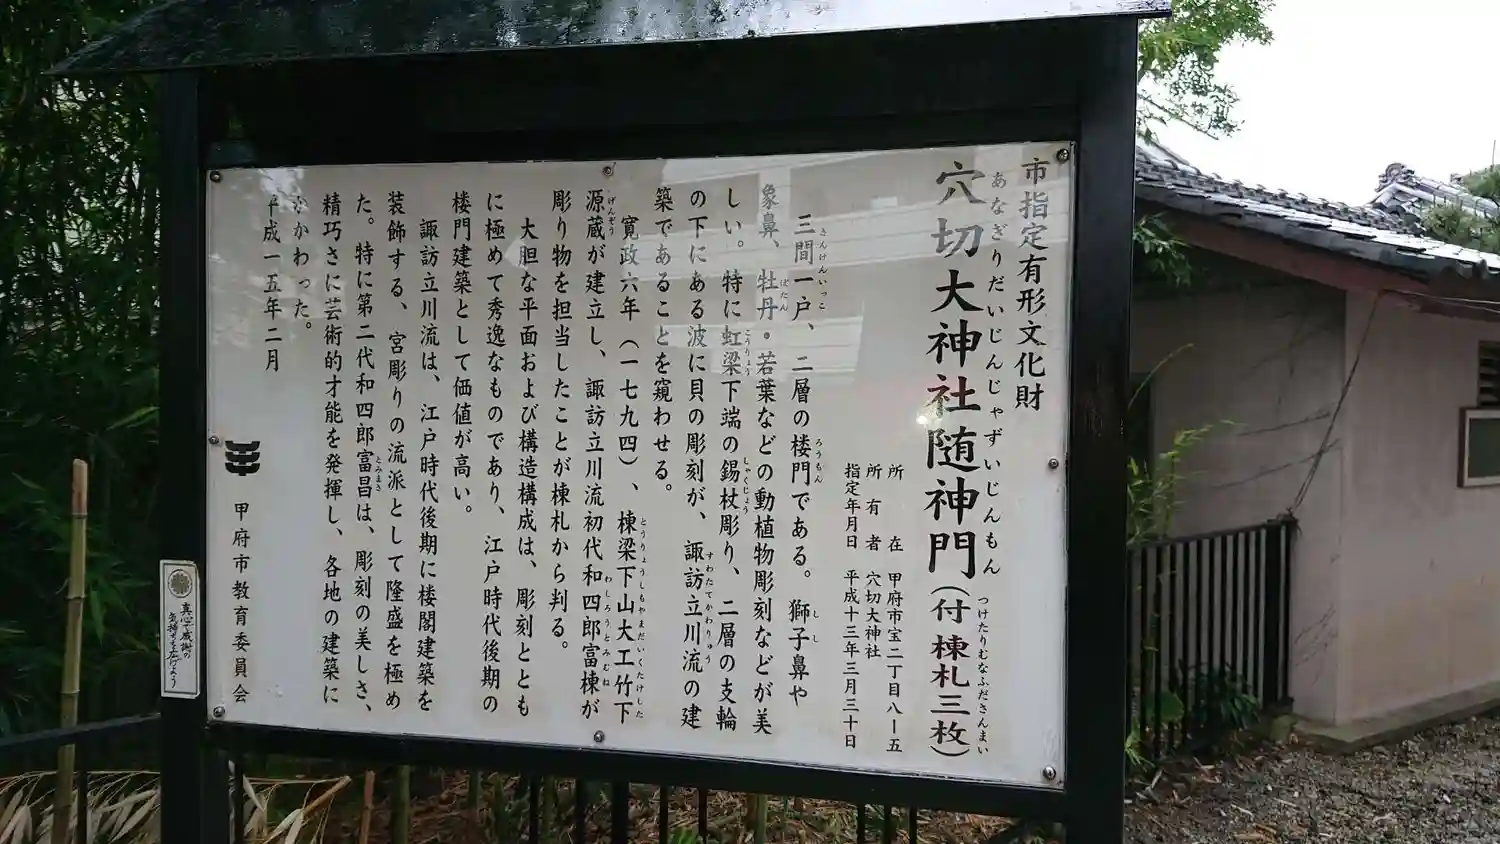 市指定有形文化財
穴切大神社随神門(付棟札三枚)
あなぎりだいじんじゃずいじんもん
つけたりむなふださんまい
所在 甲府市宝二丁目八ー五
所有者 穴切大神社
指定年月日 平成十三年三月三十日
三間一戸、二層の楼門である。獅子鼻や
さんげんいっこ ろうもん しし
象鼻、牡丹・若葉などの動植物彫刻などが美
ぼたん
しい。特に虹梁下端の錫杖彫り、二層の支輪
こうりょう しゃくじょう
の下にある波に貝の彫刻が、諏訪立川流の建
すわたてかわりゅう
築であることを窺わせる。
寛政六年(一七九四)、棟梁下山大工竹下
とうりょうしもやまだいくたけした
源蔵が建立し、諏訪立川流初代和四郎富棟が
げんぞう わしろうとみむね
彫り物を担当したことが棟札から判る。
大胆な平面および構造構成は、彫刻ととも
に極めて秀逸なものであり、江戸時代後期の
楼門建築として価値が高い。
諏訪立川流は、江戸時代後期に楼閣建築を
装飾する、宮彫りの流派として隆盛を極め
た。特に第二代和四郎富昌は、彫刻の美しさ、
とみまさ
精巧さに芸術的才能を発揮し、各地の建築に
かかわった。
平成一五年二月
甲府市教育委員会
真心で感謝の
気持ちを広げよう